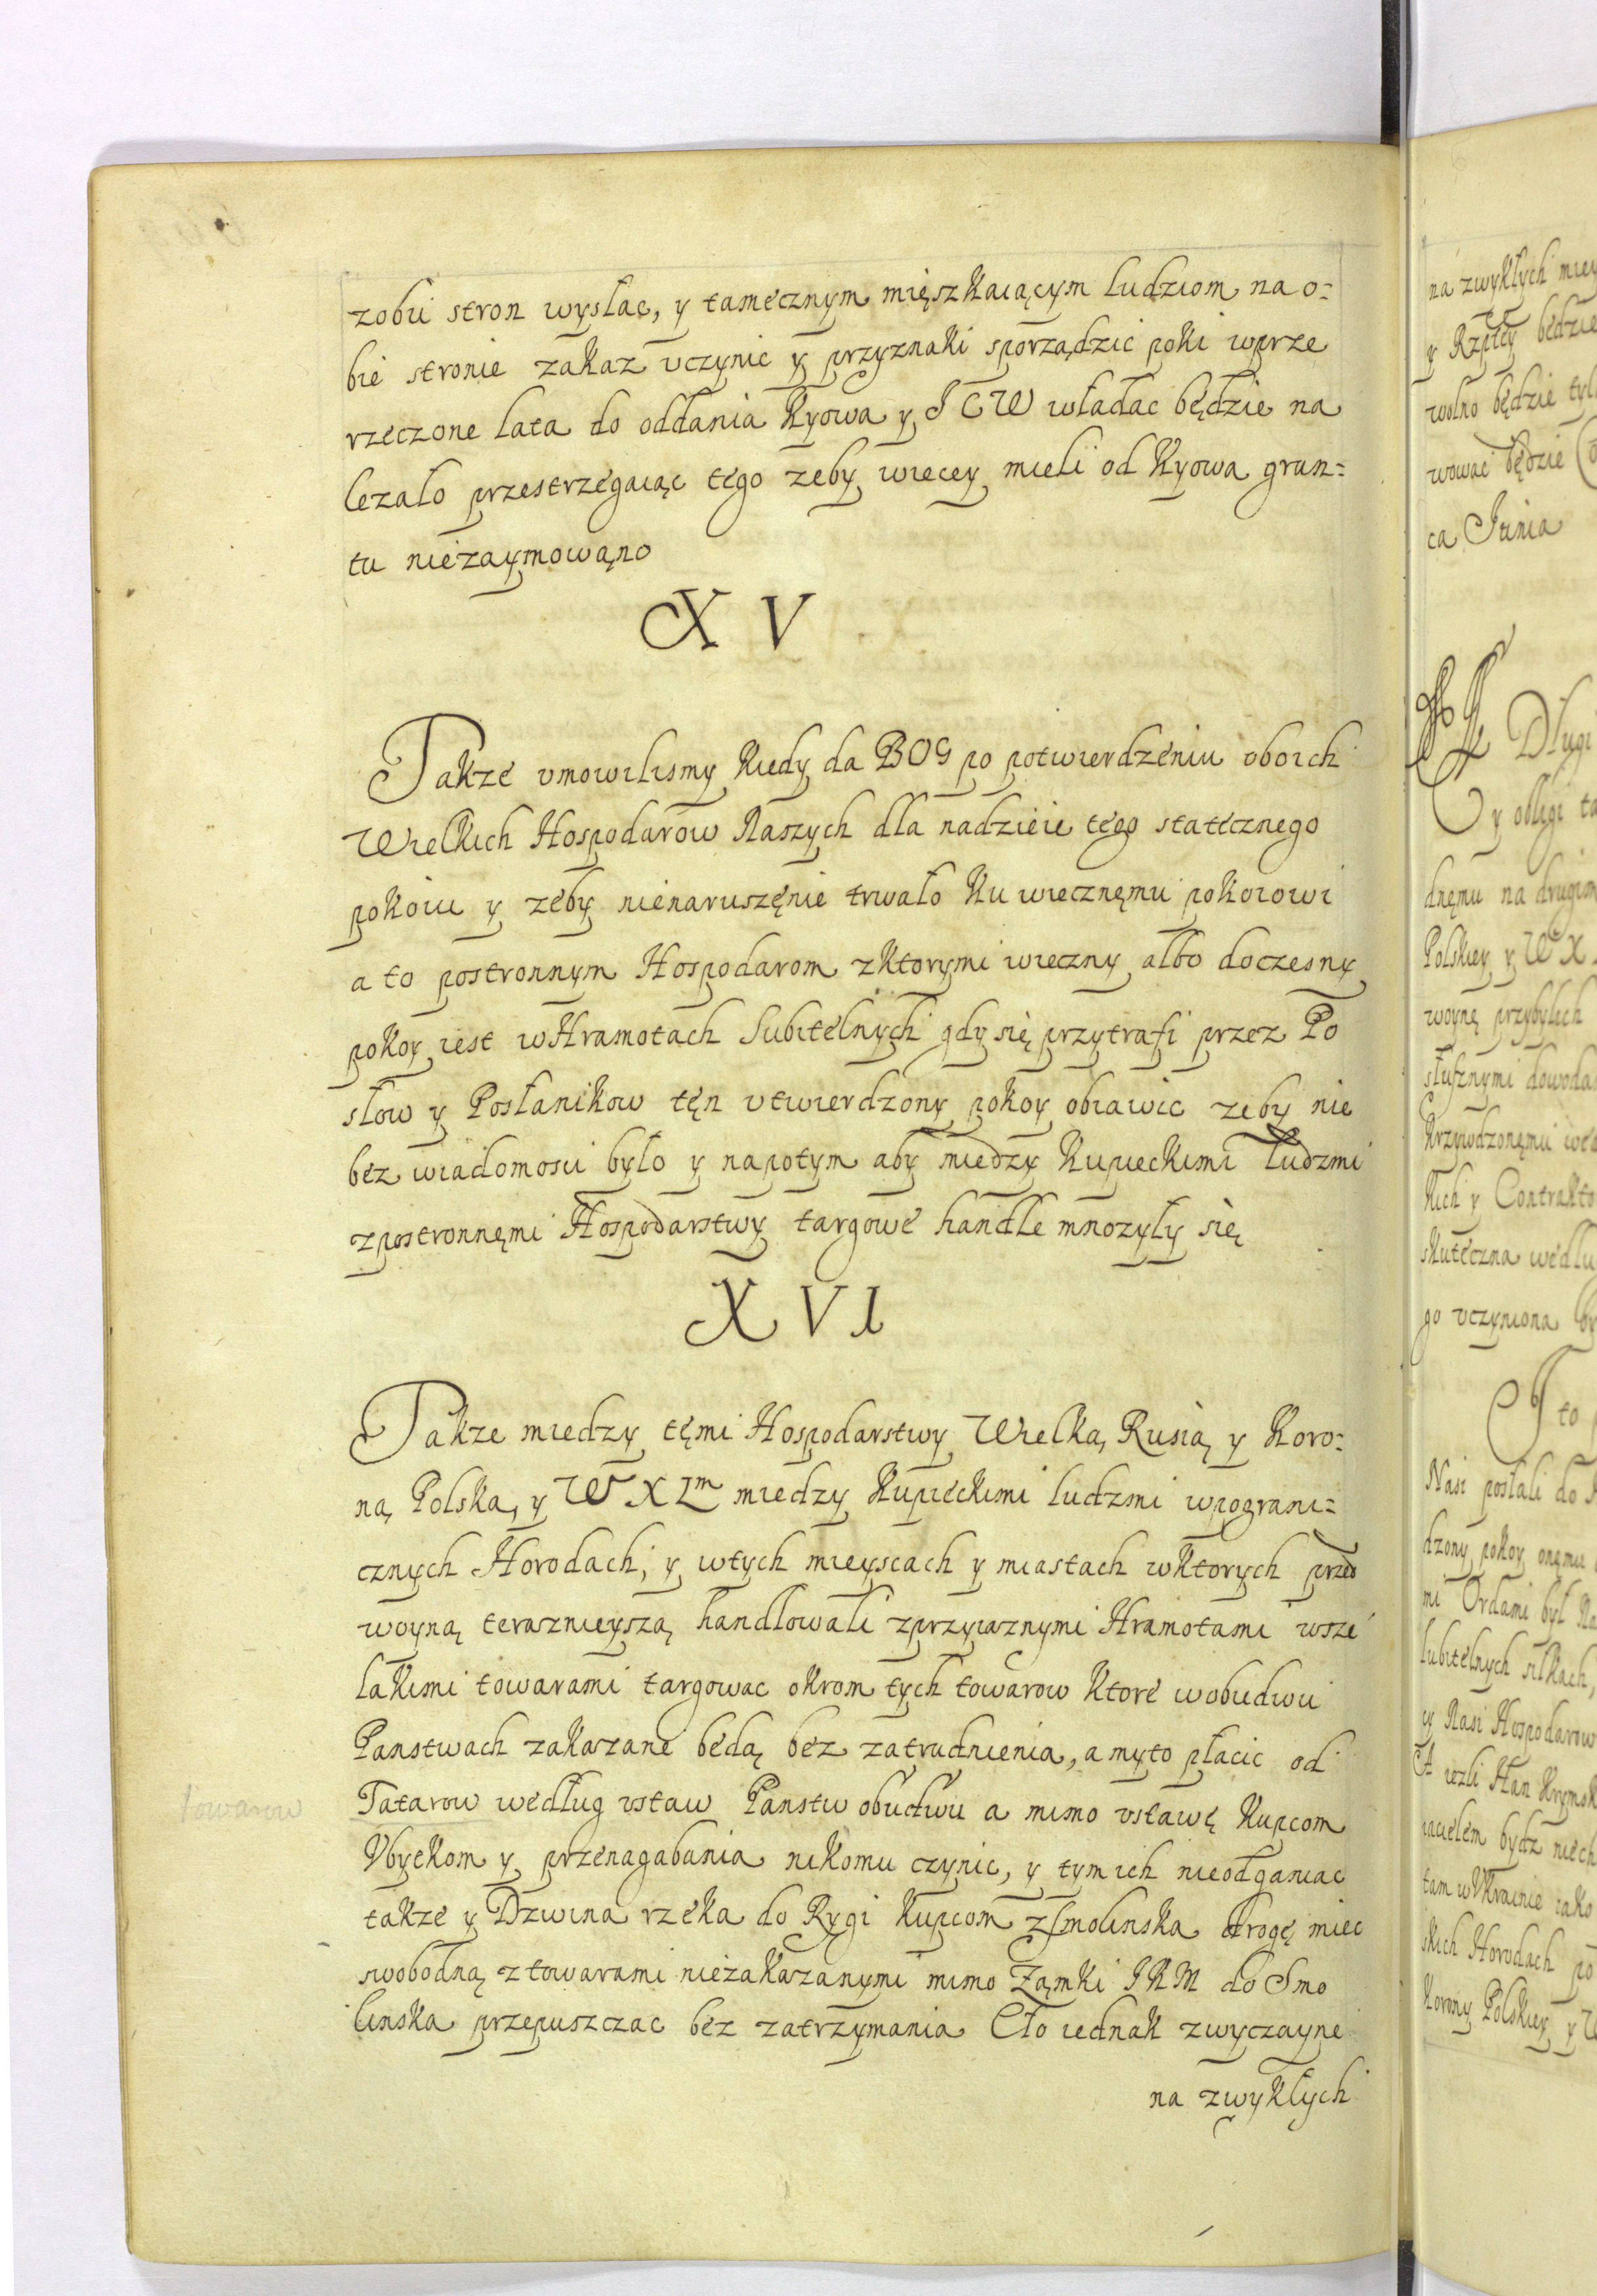 zobu stron wysłac, y tamecznym mięszkaiącym ludziom na o=
bie stronie zakaz vczynic y przyznaki sporządzic poki wprze
rzeczone lata do oddania Kyowa y J C W władac będzie na
lezało przestrzegaiąc tego zeby wiecey mieli od Kyowa grun=
tu niezaymowąno
X V
Takze vmowilismy kiedy da BOG po potwierdzeniu oboich
Wielkich Hospodarow Naszych dla nadzieie tego statecznego
pokoiu y zeby nienaruszęnie trwało ku wiecznęmu pokoiowi
a to postronnym Hospodarom zktorymi wieczny albo doczesny
pokoy iest wHramotach Lubitelnych gdy się przytrafi przez Po
słow y Posłanikow tęn vtwierdzony pokoy obiawic zeby nie
bez wiadomosci było y napotym aby miedzy kupieckimi ludzmi
zpostronnęmi Hospodarstwy targowe handle mnozyły się
X V I
Takze miedzy tęmi Hospodarstwy Wielką Rusią y Koro=
ną Polską y W X Lm miedzy kupieckimi ludzmi wpograni=
cznych Horodach, y wtych mieyscach y miastach wktorych przed
woyną teraznieyszą handlowali zprzyiaznymi Hramotami wsze
lakimi towarami targowac okrom tych towarow ktore wobudwu
Panstwach zakazane będą bez zatrudnienia, a myto płacic od
towarow
Tatarow według vstaw Panstw obudwu a mimo vstawę kupcom
Vbyckom y przenagabania nikomu czynic, y tym ich nieodganiac
takze y Dzwina rzeka do Rygi kupcom zSmolinska drogę miec
swobodną ztowarami niezakazanymi mimo Zamki J K M do Smo
linska przepuszczac bez zatrzymania Cło iednak zwyczayne
na zwykłych
na zwykłych
y Rzptey będzie
wolno będzie
wowac będzie
ca Junia
Długi
y obligi
dnęmu na drugim
Polskiey y W X
woynę przybyłych
słusznymi
Krzywdzonęmu
kich y
skuteczna według
go vczyniona
to
Nasi posłali do
dzony pokoy onęmu
mi Ordami był
lubitelnych
y Nasi Hospodarow
A iezli Han
iacielem bydz niech
tam wVkrainie iako
skich Horodach po
Korony Polskiey y